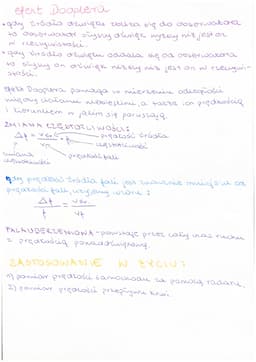 efekt Dopplera
• gdy źródło dźwięku zbliża się do obserwatora
to obserwator słyszy dźwięk wyższy niż jest on
w rzeczywistości.
• gdy źródło dźwięku oddala się od obserwatora
to słyszy on dźwięk niższy niż jest on w rzeczywi-
stości.
efekt Dopplera pomaga w mierzeniu odległości
między ciałami niebieskimi, a także ich prędkością
i kierunkiem w jakim się poruszają.
ZMIANA CZĘSTOTLIWOŚCI
Δf = vźr. / vf · f
prędkość źródła
częstotliwość
zmiana
częstotliwości
prędkość fali
gdy prędkość źródła fali jest znacznie mniejsza od
prędkości fali, używamy wzoru:
Δf / f = vźr. / vf
FALA UDERZENIOWA - powstaje przez cały czas ruchu
z prędkością ponaddźwiękową.
ZASTOSOWANIE W ŻYCIU:
1) pomiar prędkości samochodu za pomocą radaru.
2) pomiar prędkości przepływu krwi.